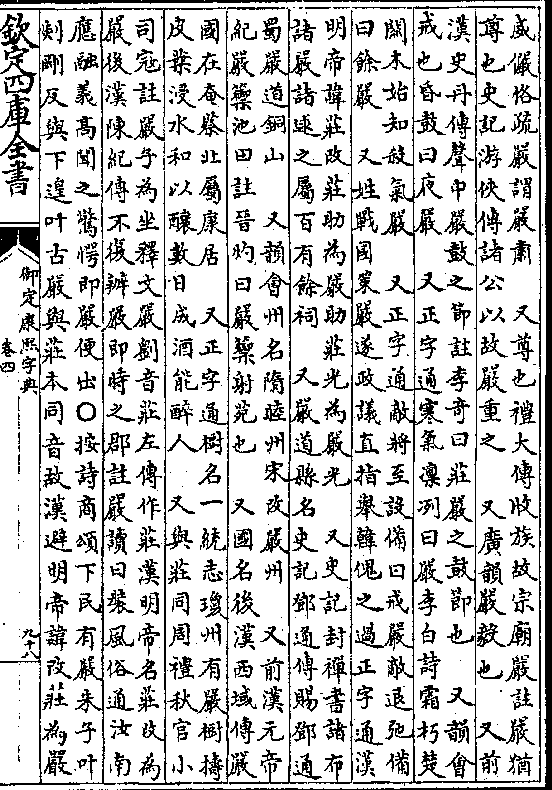 威儼俗疏嚴謂嚴肅　又尊也禮大傳收族故宗廟嚴註嚴猶
尊也史記游俠傳諸公以故嚴重之　又廣韻嚴毅也　又前
漢史丹傳聲中嚴鼓之節註李奇曰莊嚴之鼓節也　又韻會
戒也昏鼓曰夜嚴　又正字通寒氣凛冽曰嚴李白詩霜朽楚
關木始知殺氣嚴　又正字通敵將至設備曰戒嚴敵退弛備
曰餘嚴　又姓戰國策嚴遂政議直指舉韓傀之過正字通漢
明帝諱莊改莊助為嚴助莊光為嚴光　又史記封禪書諸布
諸嚴諸逑之屬百有餘祠　又嚴道縣名史記鄧通傳賜鄧通
蜀嚴道銅山　又韻會州名隋睦州宋改嚴州　又前漢元帝
紀嚴籞池田註晉灼曰嚴籞射苑也　又國名後漢西域傳嚴
國在奄蔡北屬康居　又正字通樹名一統志瓊州有嚴樹擣
皮葉浸水和以釀數日成酒能醉人　又與莊同周禮秋官小
司寇註嚴子為坐釋文嚴劉音莊左傳作莊漢明帝名莊改為
嚴後漢陳紀傳不復辨嚴即時之郡註嚴讀曰裝風俗通汝南
應融義高聞之驚愕即嚴便出○按詩商頌下民有嚴朱子叶
剡剛反與下遑叶古嚴與莊本同音故漢避明帝諱改莊為嚴
欽定四庫全書
御定康熙字典
卷四
九十八